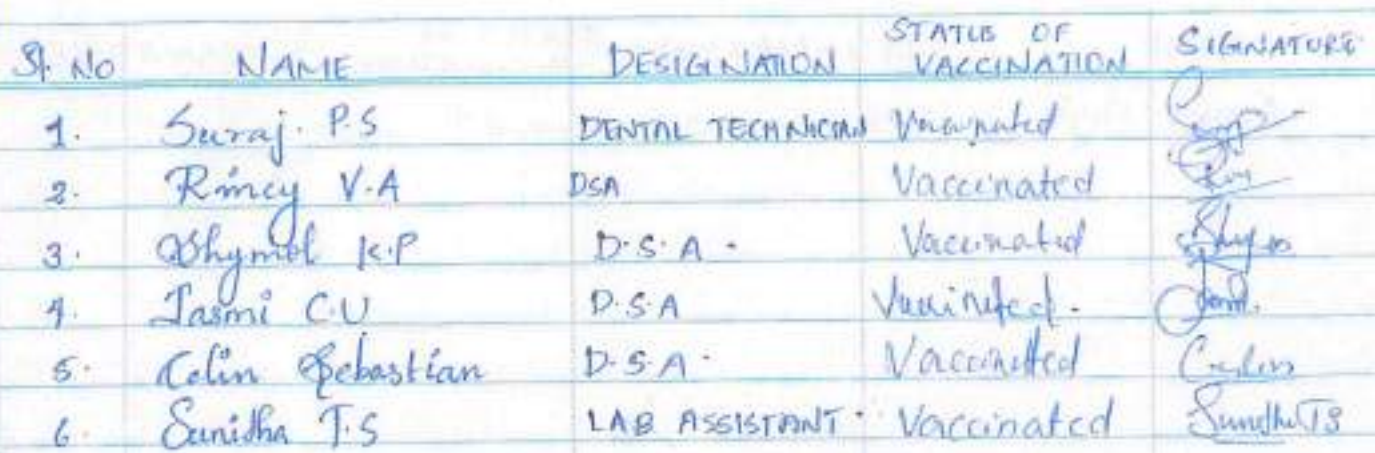 Sl. No NAME DESIGNATION STATUS OF VACCINATION SIGNATURE
1. Suraj. P.S DENTAL TECHNICIAN Vaccinated
2. Rincy V.A DSA Vaccinated
3. Shymol K.P D.S.A. Vaccinated
4. Jasmi C.U D.S.A Vaccinated.
5. Celin Sebastian D.S.A. Vaccinated Celin
6. Sunidha T.S LAB ASSISTANT. Vaccinated Sunidha TS